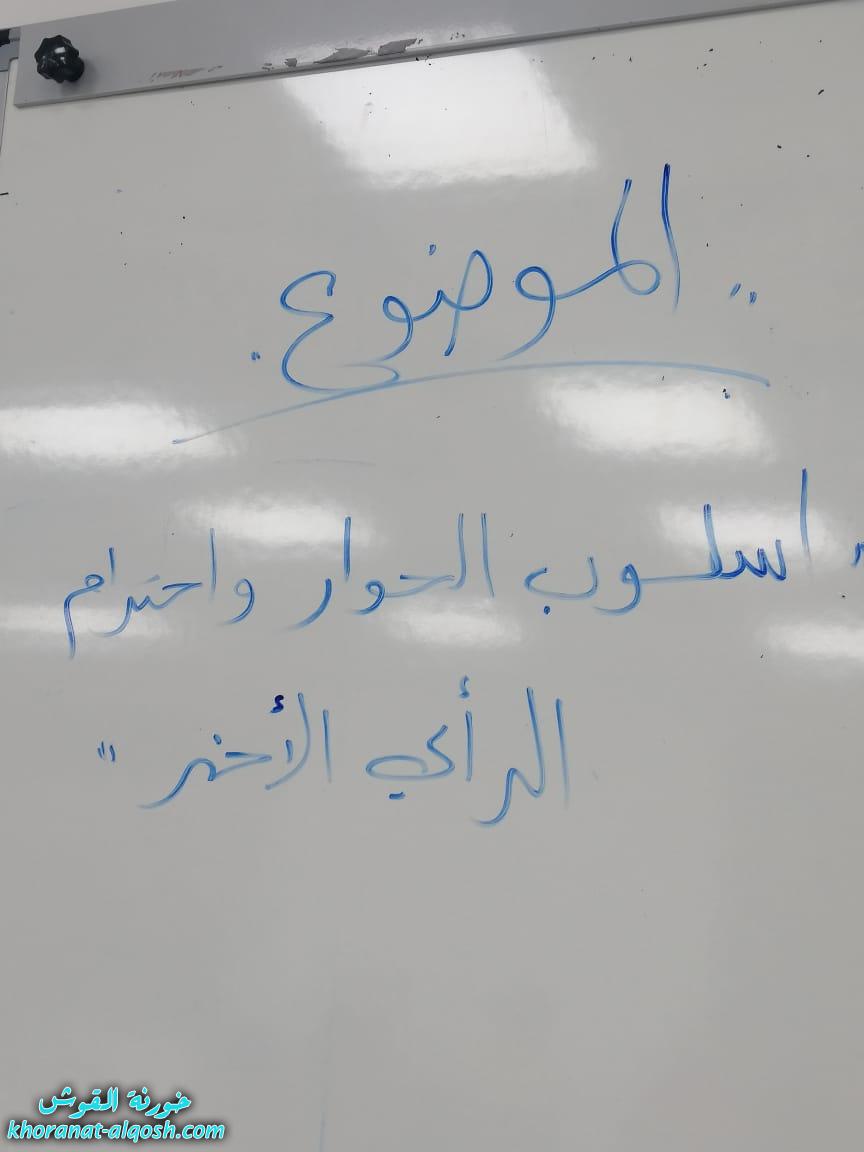 " الموضوع .
" اسلوب الحوار واحترام
الرأي الأخر "
خورنة القوش
khoranat-alqosh.com